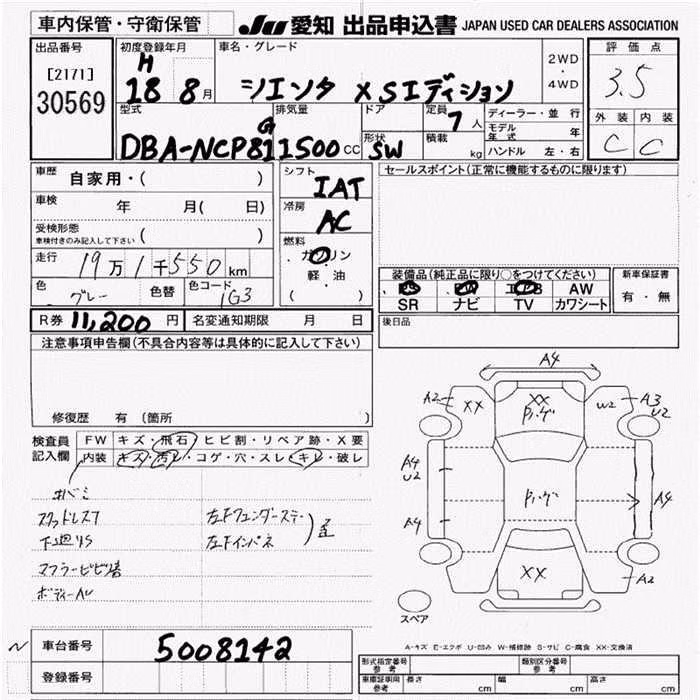 車内保管・守衛保管
JU 愛知 出品申込書 JAPAN USED CAR DEALERS ASSOCIATION
出品番号
[2171]
30569
初度登録年月
H
18 8月
車名・グレード
シエンタ XSエディション
2WD
・
4WD
評価点
3.5
外装 内装
C C
型式
DBA-NCP81G
排気量
1500cc
ドア
形状
SW
定員
7人
積載
kg
ディーラー・並行
モデル年式 年
ハンドル 左・右
車歴 自家用・( )
車検 年 月( 日)
受検形態
車検付きのみ記入して下さい ( )
走行 19万1千550km
色 グレー 色替 色コード 1G3
シフト
IAT
冷房
AC
燃料
ガソリン
・
軽・油
( )
セールスポイント(正常に機能するものに限ります)
装備品(純正品に限り○をつけてください)
PS PW エアB AW
SR ナビ TV カワシート
新車保証書
有・無
R券 11,200円 名変通知期限 月 日
後日品
注意事項申告欄(不具合内容等は具体的に記入して下さい)
修復歴 有 (箇所 )
検査員
記入欄
FW キズ・飛石・ヒビ割・リペア跡・X要
内装 キズ・汚レ・コゲ・穴・スレ・キレ・破レ
スタッドレスT
下廻りS
左Fフェンダーステー
左Fインパネ
A4
A2
XX
XX
W2
A3
U2
A4
U2
A4
A4
XX
A2
スペア
A-キズ E-エクボ U-凹み W-補修跡 S-サビ C-腐食 XX-交換済
車台番号 5008142
登録番号
型式指定番号
参考
類別区分番号
参考
車庫証明用
参考
長さ cm 幅 cm 高さ cm